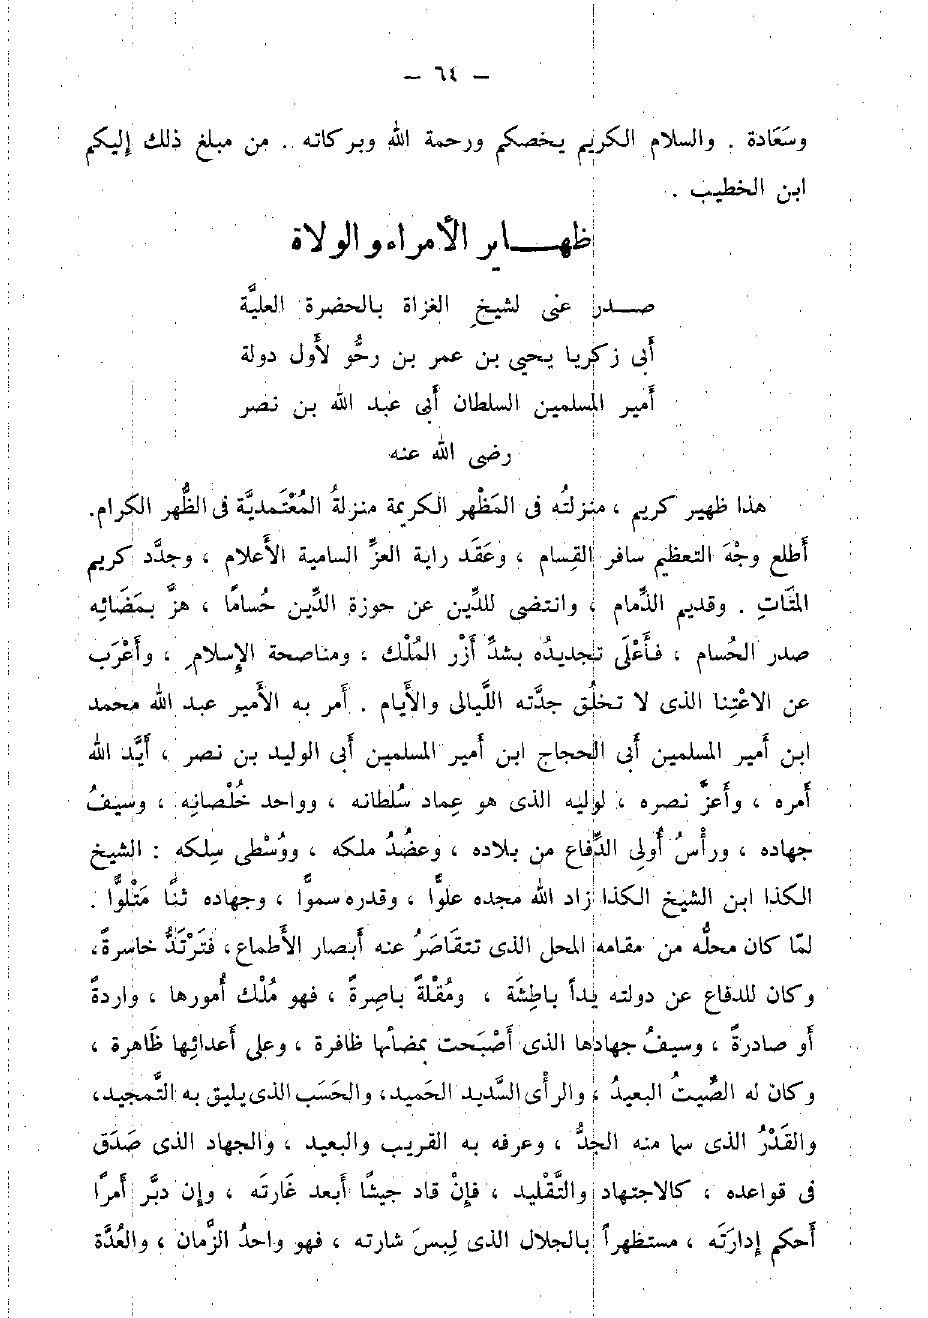 — ٦٤ —
وسَعَادة . والسلام الكريم يخصكم ورحمة الله وبركاته . من مبلغ ذلك إليكم
ابن الخطيب .
ظهاير الأمراء والولاة
صدر عنى لشيخ الغزاة بالحضرة العليَّة
أبى زكريا يحيى بن عمر بن رحُّو لأول دولة
أمير المسلمين السلطان أبى عبد الله بن نصر
رضى الله عنه
هذا ظهير كريم ، منزلتُه فى المَظْهر الكريمة منزلةُ المُعْتَمديَّة فى الظُّهر الكرام.
أطلع وجْهَ التعظيم سافر القِسام ، وعَقَد راية العزِّ السامية الأعلام ، وجدَّد كريم
المتَّاتِ . وقديم الذِّمام ، وانتضى للدِّين عن حوزة الدِّين حُسامًا ، هزَّ بمَضَائِه
صدر الحُسام ، فأعْلَى تجديدُه بشدِّ أزْر المُلْك ، ومناصحة الإسلامِ ، وأعْرَب
عن الاعْتِنا الذى لا تخلُق جدَّته اللَّيالى والأيام . أمر به الأمير عبد الله محمد
ابن أمير المسلمين أبى الحجاج ابن أمير المسلمين أبى الوليد بن نصر ، أيَّد الله
أمره ، وأعزَّ نصره ، لوليه الذى هو عِماد سُلطانه ، وواحد خُلْصانِه ، وسيفُ
جهاده ، ورأْسُ أُولى الدِّفاع من بلاده ، وعضُدُ ملكه ، ووُسْطى سِلكه : الشيخ
الكذا ابن الشيخ الكذا زاد الله مجده علوًّا ، وقدره سموًّا ، وجهاده ثنًا مَتْلوًّا .
لمّا كان محلُّه من مقامه المحل الذى تتقَاصَرُ عنه أبصار الأطماع، فتَرْتَدُّ خاسرةً،
وكان للدفاع عن دولته يداً باطِشَة ، ومُقْلةً باصِرةً ، فهو مُلْك أُمورها ، واردةً
أو صادرةً ، وسيفُ جهادها الذى أصْبَحت بمضأها ظافرة ، وعلى أعدائِها ظَاهرة ،
وكان له الصِّيتُ البعيدُ ، والرأى السَّديد الحَميد، والحَسَب الذى يليق به التَّمجيد،
والقَدْرُ الذى سما منه الجدُّ ، وعرفه به القريب والبعيد ، والجهاد الذى صَدَق
فى قواعده ، كالاجتهاد والتَّقليد ، فإنْ قاد جيشًا أبعد غَارتَه ، وإن دبَّر أمرًا
أحكم إدارَتَه ، مستظهراً بالجلال الذى لِبسَ شارته ، فهو واحدُ الزَّمان ، والعُدَّة